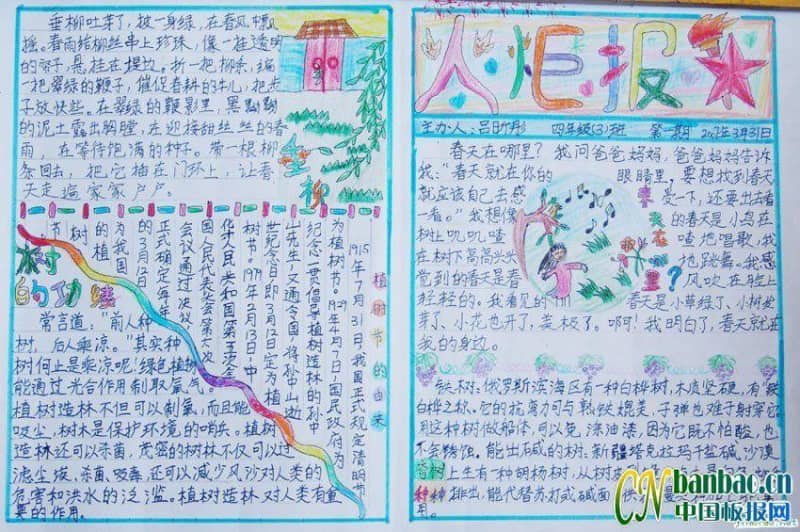 垂柳吐芽了，披一身绿，在春风中飘
摇。春雨给柳丝串上珍珠，像一挂透明
的帘子，悬挂在堤边。折一把柳条，编
一把翠绿的鞭子，催促春耕的牛儿，把步
子放快些。在翠绿的鞭影里，黑黝黝
的泥土露出胸膛，在迎接甜丝丝的春
雨，在等待饱满的种子。带一根柳
条回去，把它插在门环上，让春
天走遍家家户户。
垂柳
植树节的由来
1915年7月31日，我国正式规定清明节
为植树节。1929年4月7日，国民政府为
纪念一贯倡导植树造林的孙中
山先生，又通令全国，将孙中山逝
世纪念日即3月12日定为植
树节。1979年2月23日，中
华人民共和国第五次全
国人民代表大会第六次
会议通过决议
正式确定每年
的3月12日
为我国
的植
树
节
树的功绩
常言道：“前人种
树，后人乘凉。”其实种
树何止是乘凉呢！绿色植物
能通过光合作用制取氧气。
植树造林不但可以制氧，而且能
吸尘，树木是保护环境的哨兵。植树
造林还可以杀菌，茂密的树林不仅可以过
滤尘埃、杀菌、吸毒，还可以减少风沙对人类的
危害和洪水的泛滥。植树造林对人类有重
要的作用。
火炬报
主办人：吕昕彤 四年级(3)班 第一期 2007年3月31日
春天在哪里？我问爸爸妈妈，爸爸妈妈告诉
我：“春天就在你的眼睛里，要想找到春天
就应该自己去感受一下，还要出去看
一看。”我想像的春天是小鸟在
树上叽叽喳喳地唱歌，我
在树下高高兴兴地跳舞。我感
觉到的春天是春风吹在脸上
轻轻的。我看见的春天是小草绿了、小树发
芽了、小花也开了，美极了。啊！我明白了，春天就在
我的身边。
春天在哪里？
铁树：俄罗斯滨海区有一种白桦树，木质坚硬，有“铁
白桦之称。它的抗弯力可与熟铁媲美，子弹也难于射穿它。
用这种树做船体，可以免涂油漆，因为它既不怕酸，也
不会锈蚀。能出碱的树：新疆塔克拉玛干盐碱沙漠
上生有一种胡杨树，从树
种种
排出，能代替苏打或碱面
用。
CN banbao.cn
中国板报网